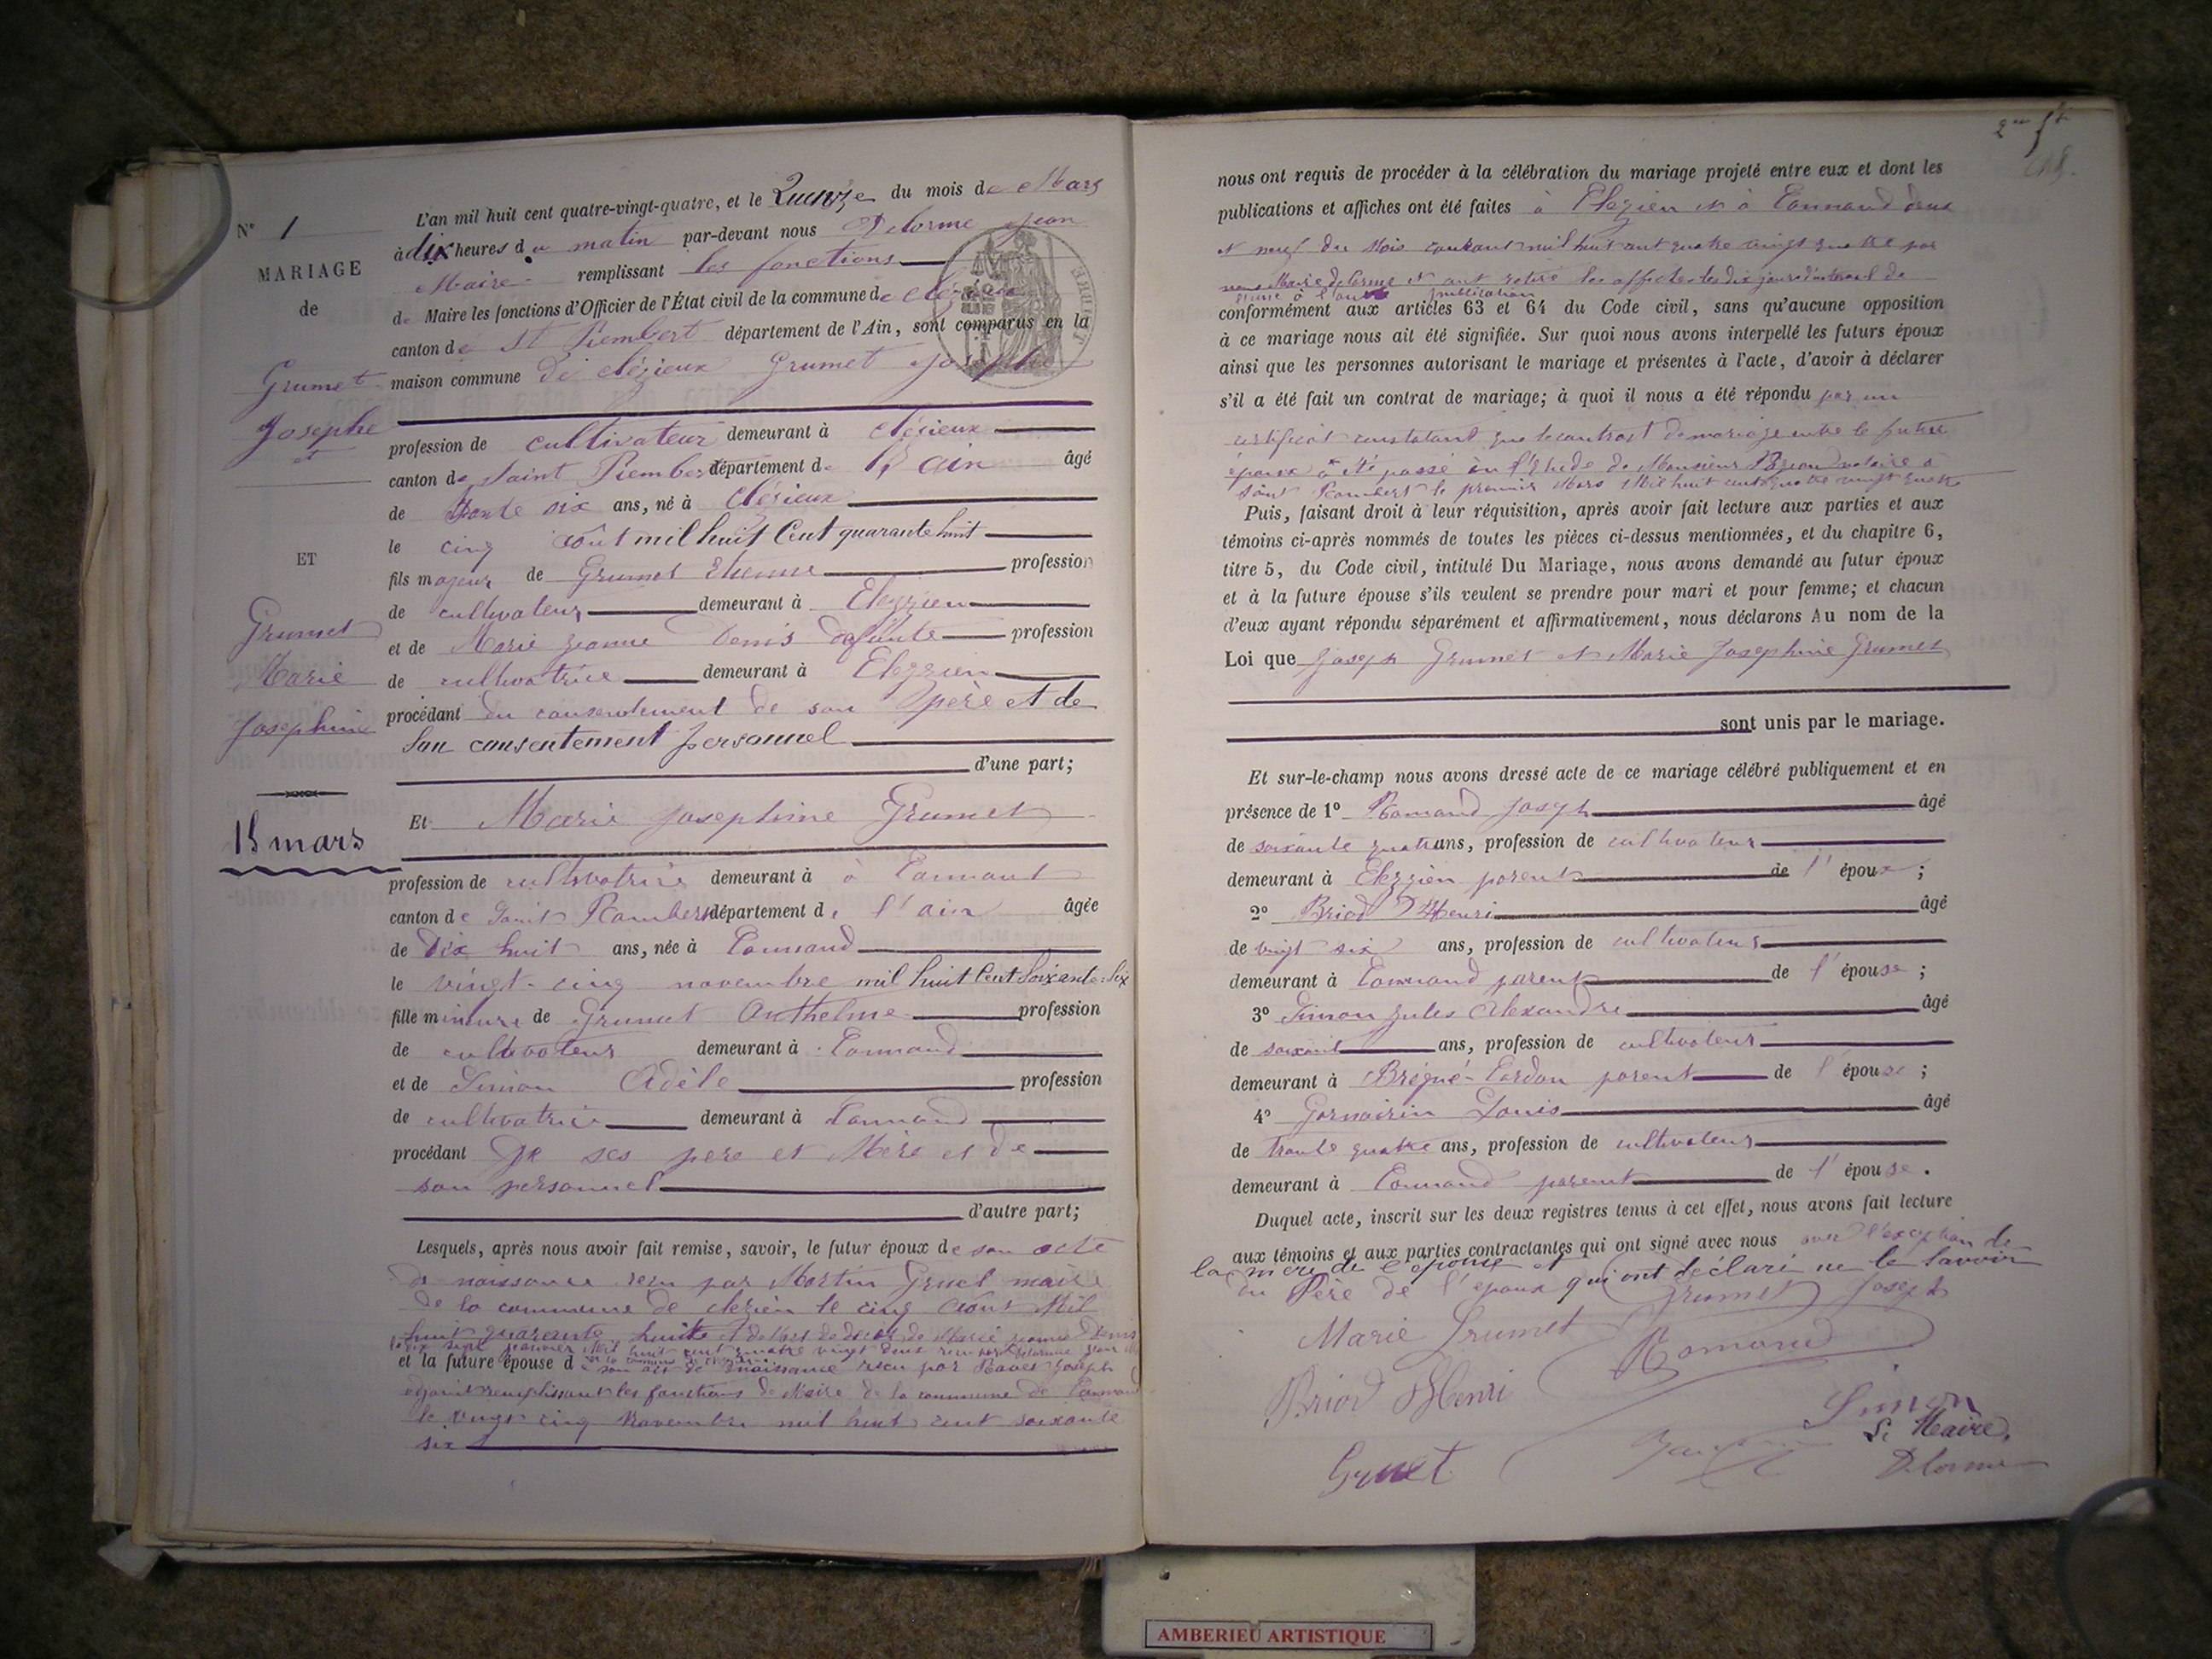 N° 1
MARIAGE
de
Grumet
Josephe
et
ET
Grumet
Marie
Josephine
15 mars
L'an mil huit cent quatre-vingt-quatre, et le Quinze du mois de Mars
à dix heures du matin par-devant nous Delorme Jean
Maire remplissant les fonctions
de Maire les fonctions d'Officier de l'État civil de la commune de
canton de St Rembert département de l'Ain, sont comparus en la
maison commune de Clézieux Grumet Josephe
profession de cultivateur demeurant à Clézieux
canton de Saint Rembert département de l'ain âgé
de trente six ans, né à Clézieux
le cinq août mil huit Cent quarante huit
fils majeur de Grumet Etienne profession
de cultivateur demeurant à Clezzieu
et de Marie jeanne Denis defunte profession
de cultivatrice demeurant à Clezzieu
procédant du consentement de son père et de
son consentement personnel
d'une part;
Et Marie Josephine Grumet
profession de cultivatrice demeurant à à Connand
canton de Saint Rambert département de l'ain âgée
de Dix huit ans, née à Connand
le vingt-cinq novembre mil huit Cent Soixante-Six
fille mineure de Grumet Anthelme profession
de cultivateur demeurant à Connand
et de Simon Adèle profession
de cultivatrice demeurant à Connand
procédant de ses pere et Mère et de
son personnel
d'autre part;
Lesquels, après nous avoir fait remise, savoir, le futur époux de son acte
de naissance reçu par Martin Gruel maire
de la commune de le cinq Aout Mil
huit quarante huite et de l'acte de décès de Marie jeanne Denis
dix sept janvier Mil huit cent quatre vingt deux reçu par Delorme jean
et la future épouse d son act de naissance reçu par Joseph
adjoint remplissant les fonctions de Maire de la commune de Connand
le vingt cinq Novembre mil huit cent soixante
six
nous ont requis de procéder à la célébration du mariage projeté entre eux et dont les
publications et affiches ont été faites à Clezieu et à Connand deux
et neuf du Mois courant mil huit cent quatre vingt quatre par
nous Maire delorme et ont les dix jours de
l'une à l'autre publication
conformément aux articles 63 et 64 du Code civil, sans qu'aucune opposition
à ce mariage nous ait été signifiée. Sur quoi nous avons interpellé les futurs époux
ainsi que les personnes autorisant le mariage et présentes à l'acte, d'avoir à déclarer
s'il a été fait un contrat de mariage; à quoi il nous a été répondu par un
certificat constatant que le contrast de mariage entre le future
époux a été passé en l'étude de Monsieur notaire à
saint Rambert le premier Mars Mil huit cent quatre vingt quatre
Puis, faisant droit à leur réquisition, après avoir fait lecture aux parties et aux
témoins ci-après nommés de toutes les pièces ci-dessus mentionnées, et du chapitre 6,
titre 5, du Code civil, intitulé Du Mariage, nous avons demandé au futur époux
et à la future épouse s'ils veulent se prendre pour mari et pour femme; et chacun
d'eux ayant répondu séparément et affirmativement, nous déclarons Au nom de la
Loi que Joseph Grumet et Marie Josephine Grumet
sont unis par le mariage.
Et sur-le-champ nous avons dressé acte de ce mariage célébré publiquement et en
présence de 1° Romand Joseph âgé
de soixante quatre ans, profession de cultivateur
demeurant à Clezzieu parent de l'époux;
2° Briod Henri âgé
de vingt six ans, profession de cultivateur
demeurant à Connand parent de l'épouse;
3° Simon Jules Alexandre âgé
de soixante ans, profession de cultivateur
demeurant à Brégné-Cordon parent de l'épouse;
4° Louis âgé
de trente quatre ans, profession de cultivateur
demeurant à Connand parent de l'épouse.
Duquel acte, inscrit sur les deux registres tenus à cet effet, nous avons fait lecture
aux témoins et aux parties contractantes qui ont signé avec nous avec l'exception de
la mère de l'épouse et
du Père de l'époux qui ont déclaré ne le savoir
Grumet Joseph
Marie Grumet
Romand
Briod Henri
Simon
Le Maire,
Delorme
AMBERIEU ARTISTIQUE